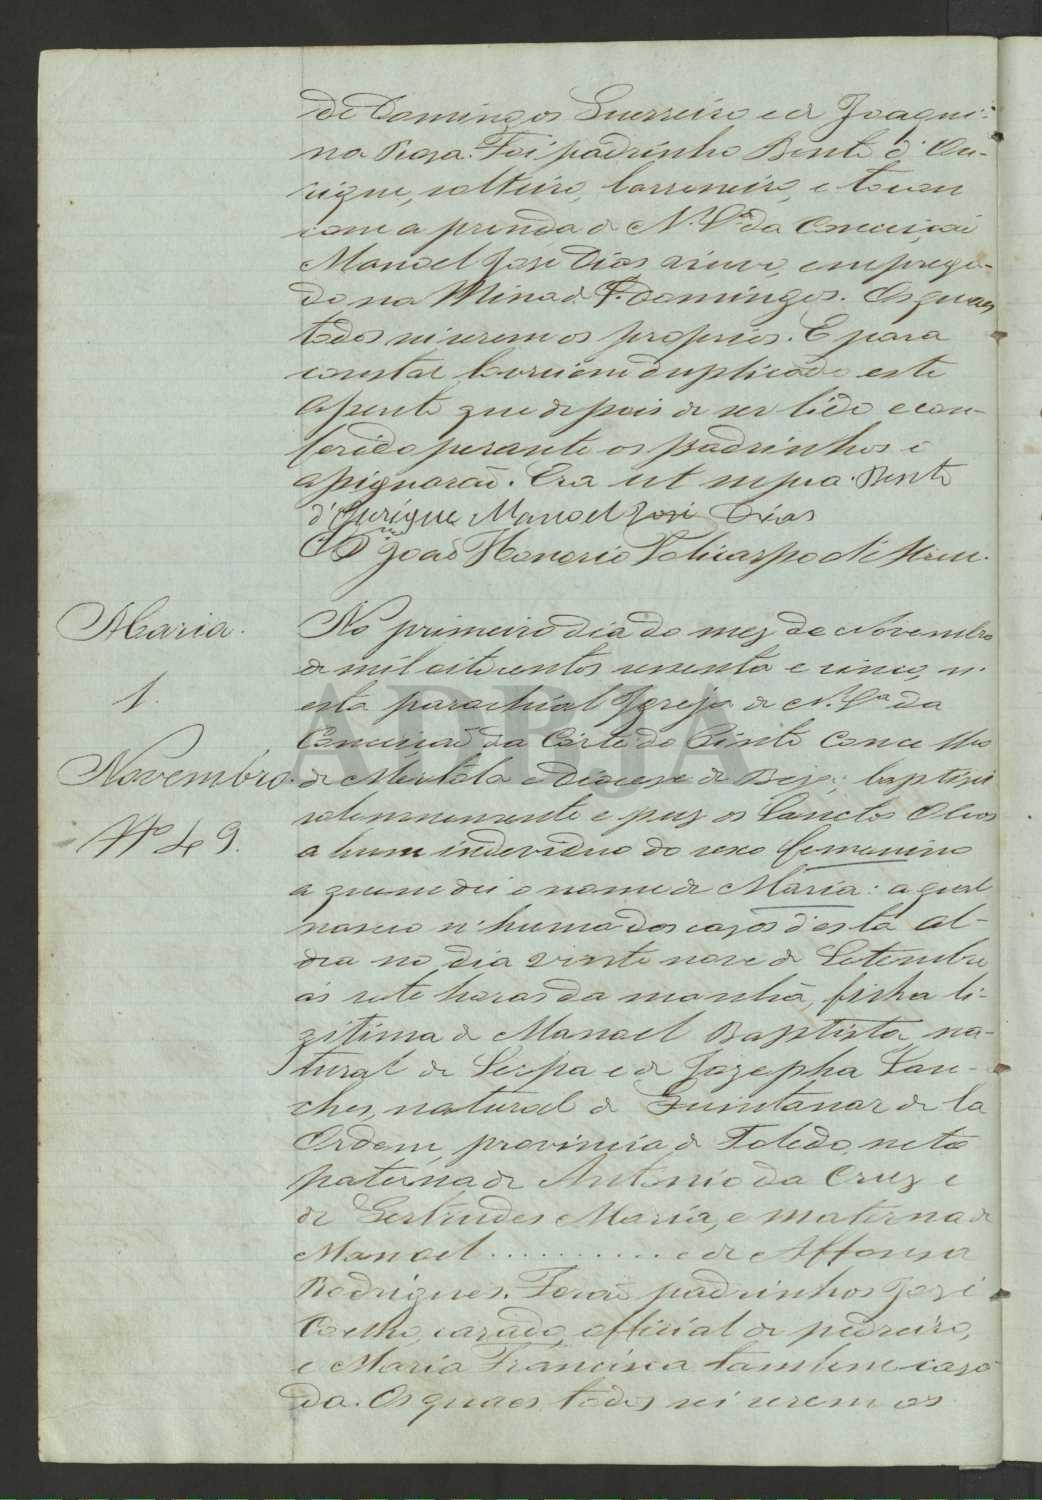 de Domingos Guerreiro e de Joaqui-
na Roza. Foi padrinho Bento d'Ou-
rique, solteiro, carreneiro, e tocou
com a prenda de N. Sra. da Conceiçaõ
Manoel Jose Dias viuvo, emprega-
do na Mina de S. Domingos. Os quaes
todos sei serem os proprios. E para
constar lavrei em duplicado este
assento que depois de ser lido e con-
ferido perante os padrinhos e
assignaraõ. Era ut supra. Bento
d'Ourique Manoel Jose Dias
O P. João Honorio Policarpo
Maria.
1.
Novembro.
Nº 49.
No primeiro dia do mez de Novembro
de mil oitocentos sessenta e cinco, n'
esta parochial Igreja de N. Sra. da
Conceiçaõ da Côrte do Pinto Concelho
de Mertola e Diocese de Beja; baptizei
solemnemente e puz os Sanctos Oleos
a hum individuo do sexo femenino
a quem dei o nome de Maria: a qual
nasceo n'huma das cazas d'esta al-
dea no dia vinte nove de Setembro
ás sete horas da manhã, filha li-
gitima de Manoel Baptista, na-
tural de Serpa e de Jozepha San-
ches, natural de Quintanar de la
Ordem, provincia de Toledo, neta
paterna de Antonio da Cruz e
de Gertrudes Maria, e materna de
Manoel ........... e de Affonsa
Rodrigues. Foraõ padrinhos Jozé
Coelho, cazado, official de pedreiro,
e Maria Francisca tambem caza-
da. Os quaes todos sei serem os
ADBJA